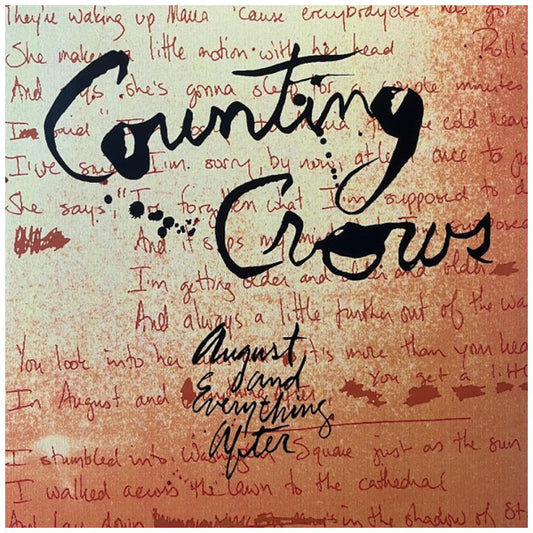 They're waking up Maria 'cause everybody else has got
She makes a little motion with her head
Rolls
And says she's gonna sleep for a couple minutes
Counting
I've said I'm sorry, by now, at least once to
Crows
She says, "I've forgotten what I'm supposed to d
And it slips my mind
I'm getting older and older and older
And always a little further out of the wa
You look into her it's more than you hea
August
and
Everything
After
In August and everything after You get a litt
I stumbled into Washington Square just as the sun
I walked across the lawn to the cathedral
And lay down in the shadow of St